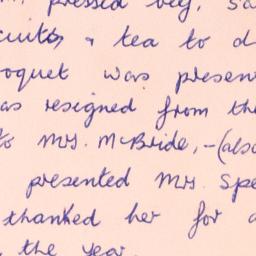 pressed beef, sa
cuits, & tea to d
oquet was presen
as resigned from the
to Mrs. McBride, - (also
presented Mrs. Spe
thanked her for a
the year.